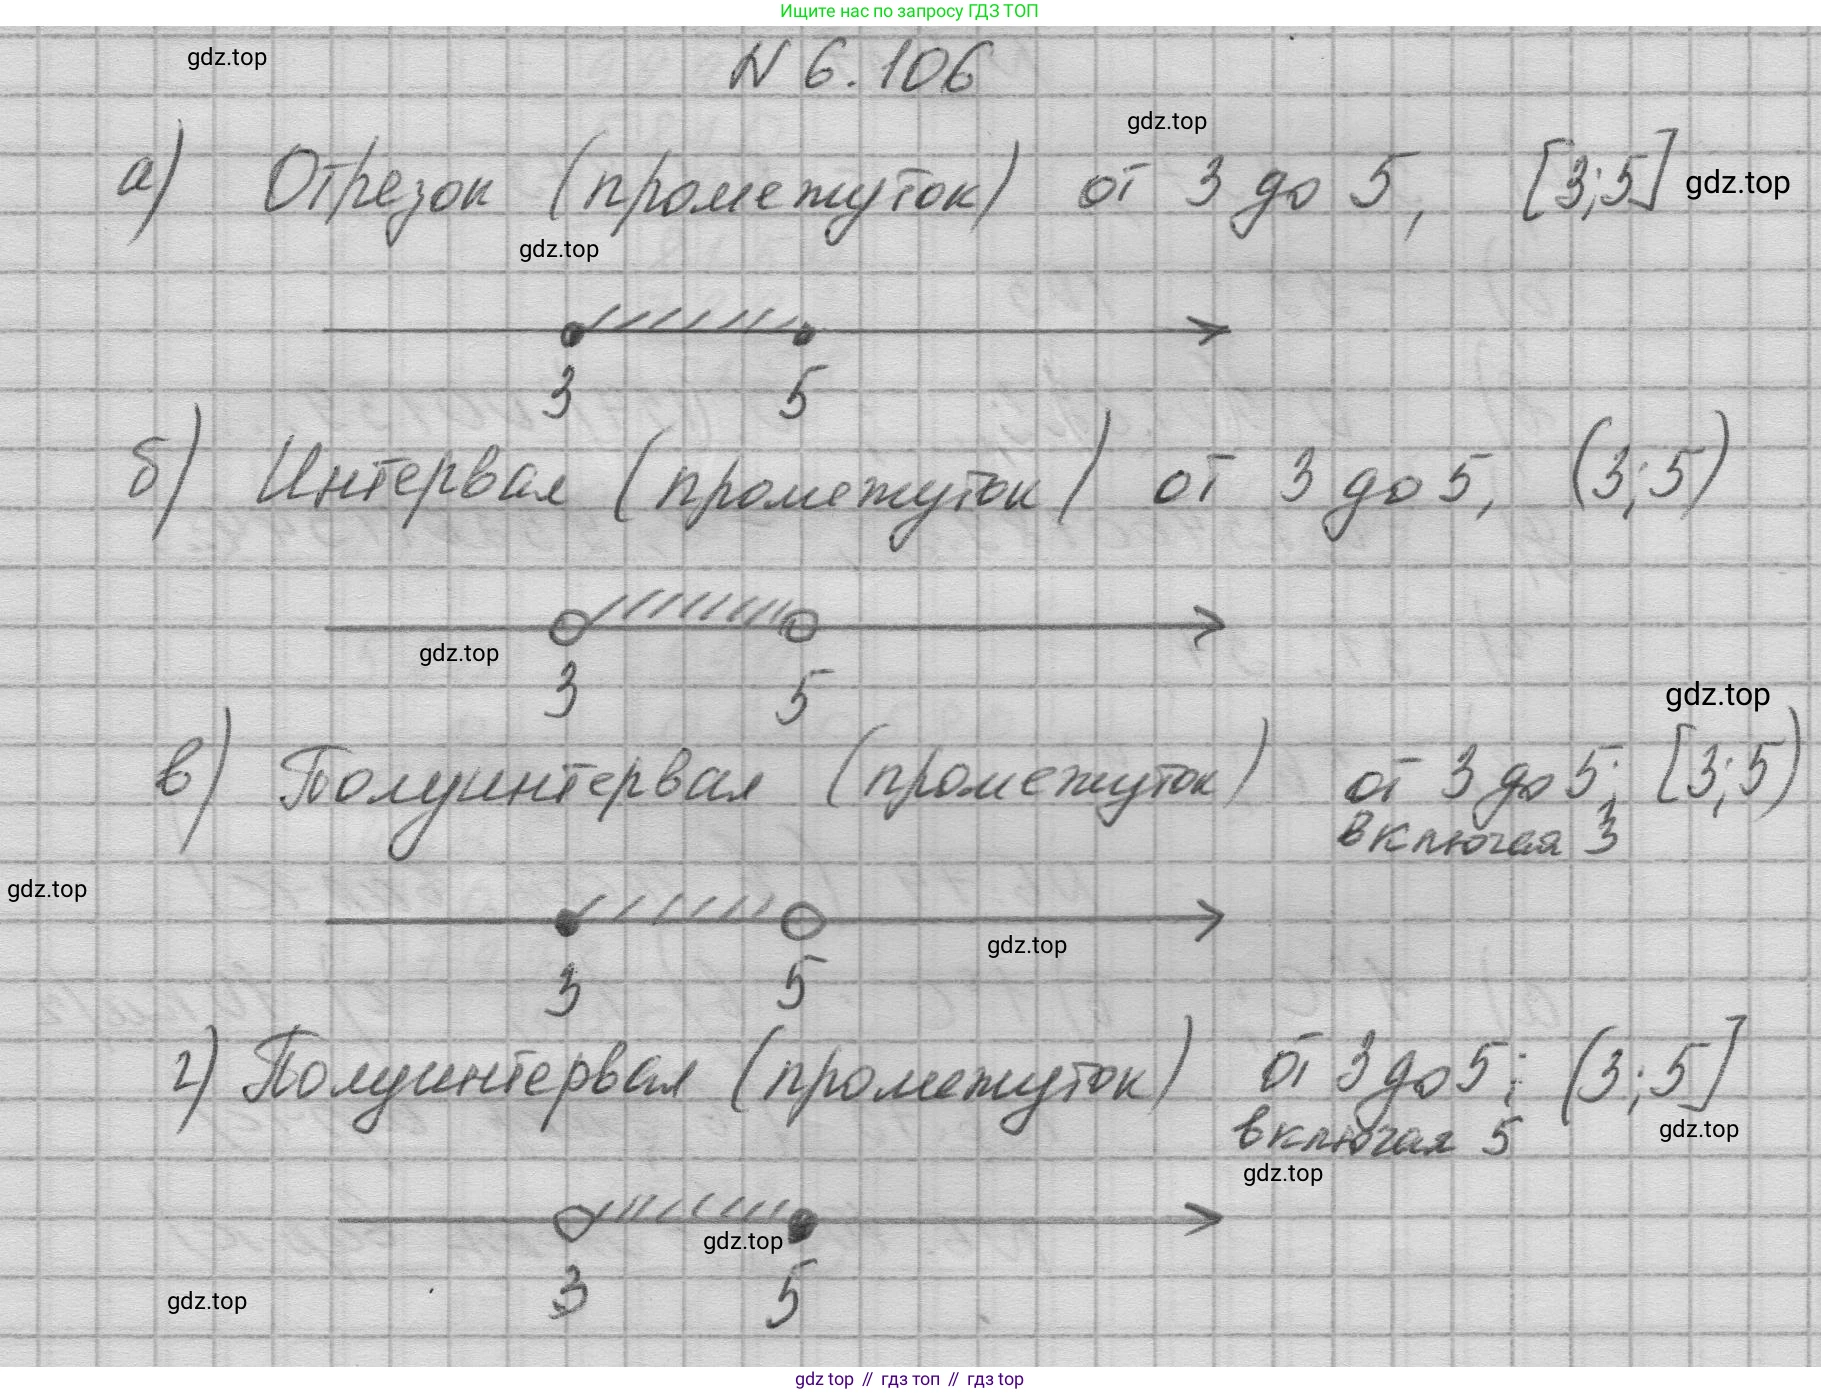 Ищите нас по запросу ГДЗ ТОП
gdz.top
N 6.106
gdz.top
а) Отрезок (промежуток) от 3 до 5, [3;5] gdz.top
gdz.top
3 5
б) Интервал (промежуток) от 3 до 5, (3;5)
gdz.top
3 5
gdz.top
в) Полуинтервал (промежуток) от 3 до 5; [3;5)
включая 3
gdz.top
gdz.top
3 5
г) Полуинтервал (промежуток) от 3 до 5; (3;5]
включая 5
gdz.top
gdz.top
gdz.top
3 5
gdz.top
gdz top // гдз топ // гдз top